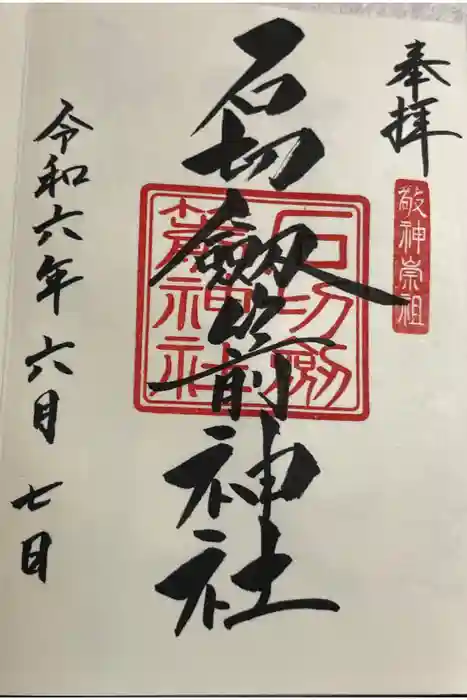 奉拝
敬神崇祖
石切劔箭神社
石切劔
箭神社
令和六年六月七日